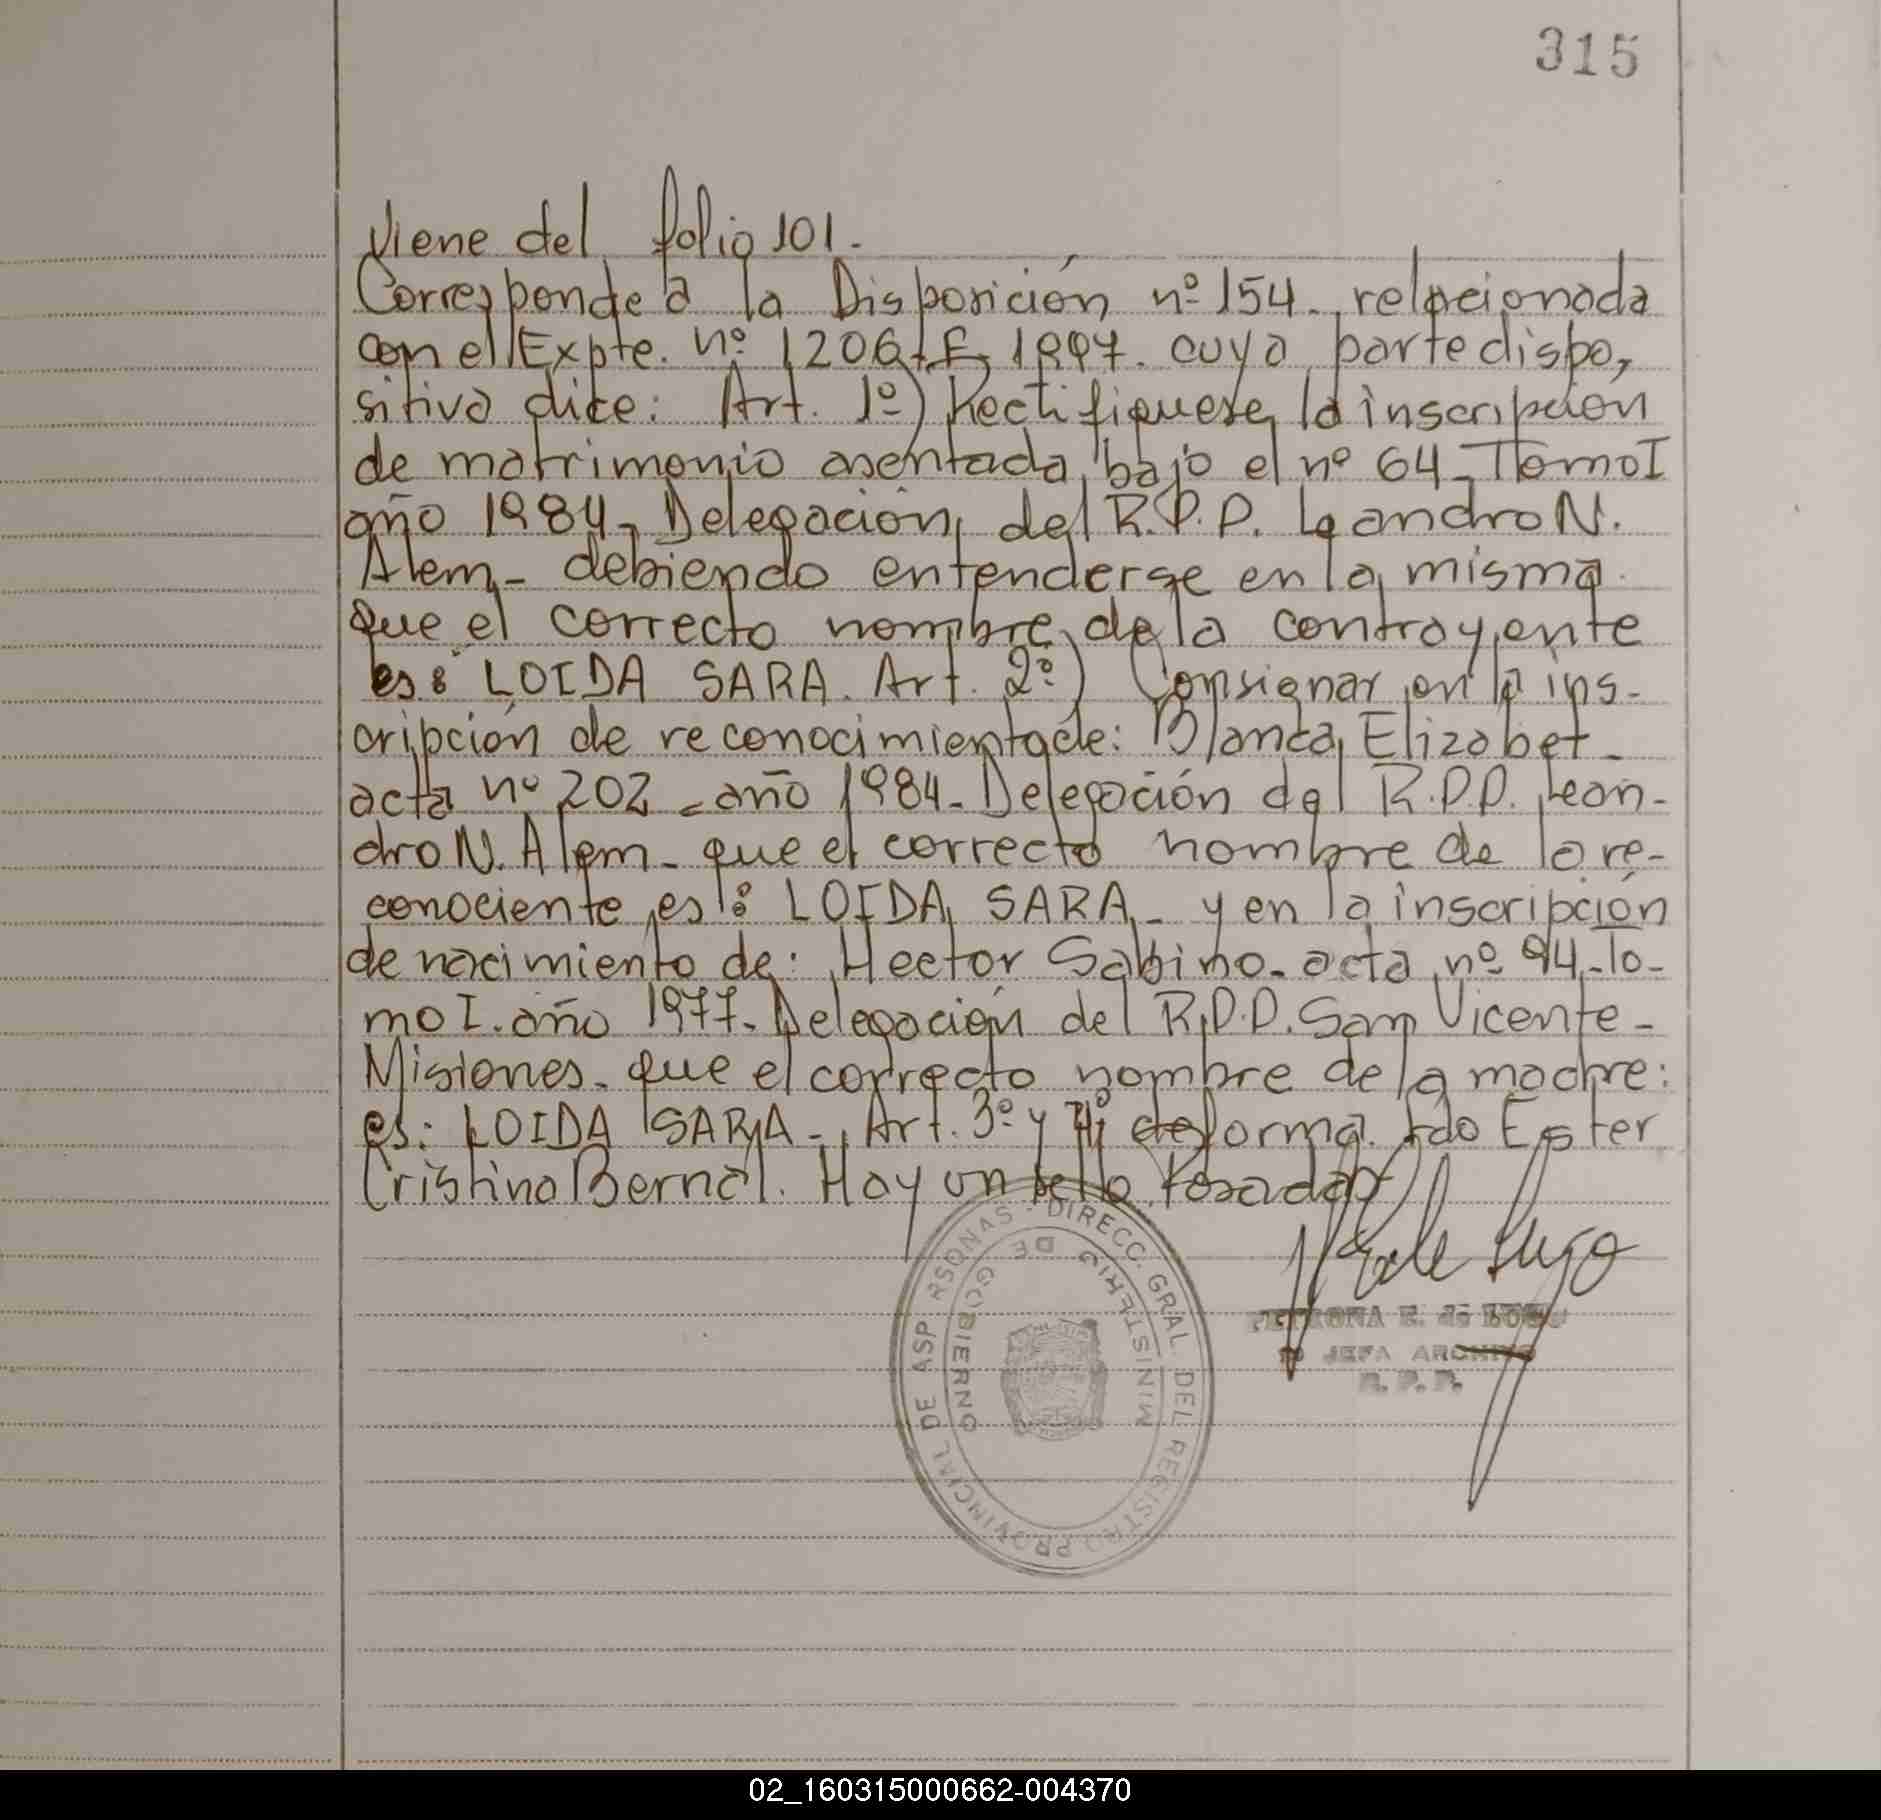 315
Viene del folio 101.-
Corresponde a la Disposición nº 154. relacionada
con el Expte. nº 1206-F-1997. cuya parte dispo,
sitiva dice: Art. 1º) Rectifiquese la inscripción
de matrimonio asentada bajo el nº 64-Tomo I
año 1984- Delegación del R.P.P. Leandro N.
Alem- debiendo entenderse en la misma
que el correcto nombre de la contrayente
es: LOIDA SARA. Art. 2º) Consignar en la ins-
cripción de reconocimiento de: Blanca Elizabet-
acta nº 202 - año 1984- Delegación del R.P.P. Lean-
dro N. Alem- que el correcto nombre de la re-
conociente es: LOIDA SARA- y en la inscripción
de nacimiento de: Hector Sabino- acta nº 94-To-
mo I. año 1977- Delegación del R.P.P. San Vicente-
Misiones- que el correcto nombre de la madre:
es: LOIDA SARA-, Art. 3º y 4º de forma. Fdo Ester
Cristina Bernal. Hay un sello. Posadas
DIRECC. GRAL DEL REGISTRO PROVINCIAL DE
MINISTERIO DE GOBIERNO
JEFA ARCHIVO
R. P. P.
02_160315000662-004370